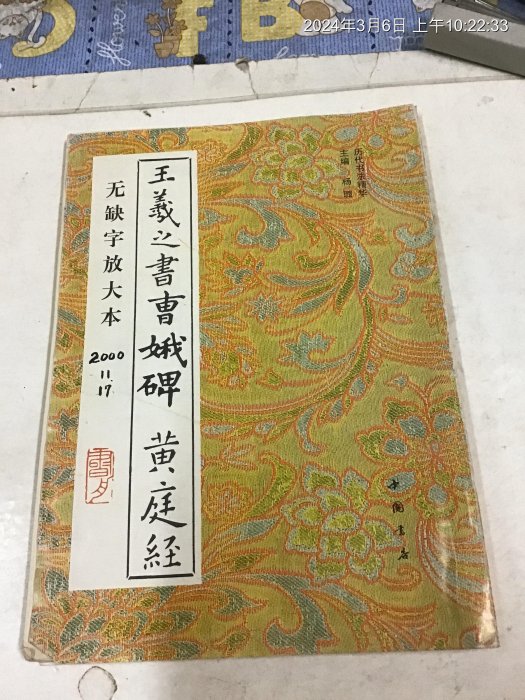 2024年3月6日 上午10:22:33
历代书法精华
主编 杨
王羲之書曹娥碑 黄庭経
无缺字放大本
2000
11.
17
中国書店